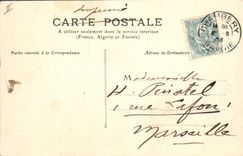 Imprimé
CARTE POSTALE
A utiliser seulement dans le service intérieur
(France, Algérie et Tunisie)
Partie réservée à la Correspondance
Adresse du Destinataire
Mademoiselle
H.
1 rue Lafon
Marseille